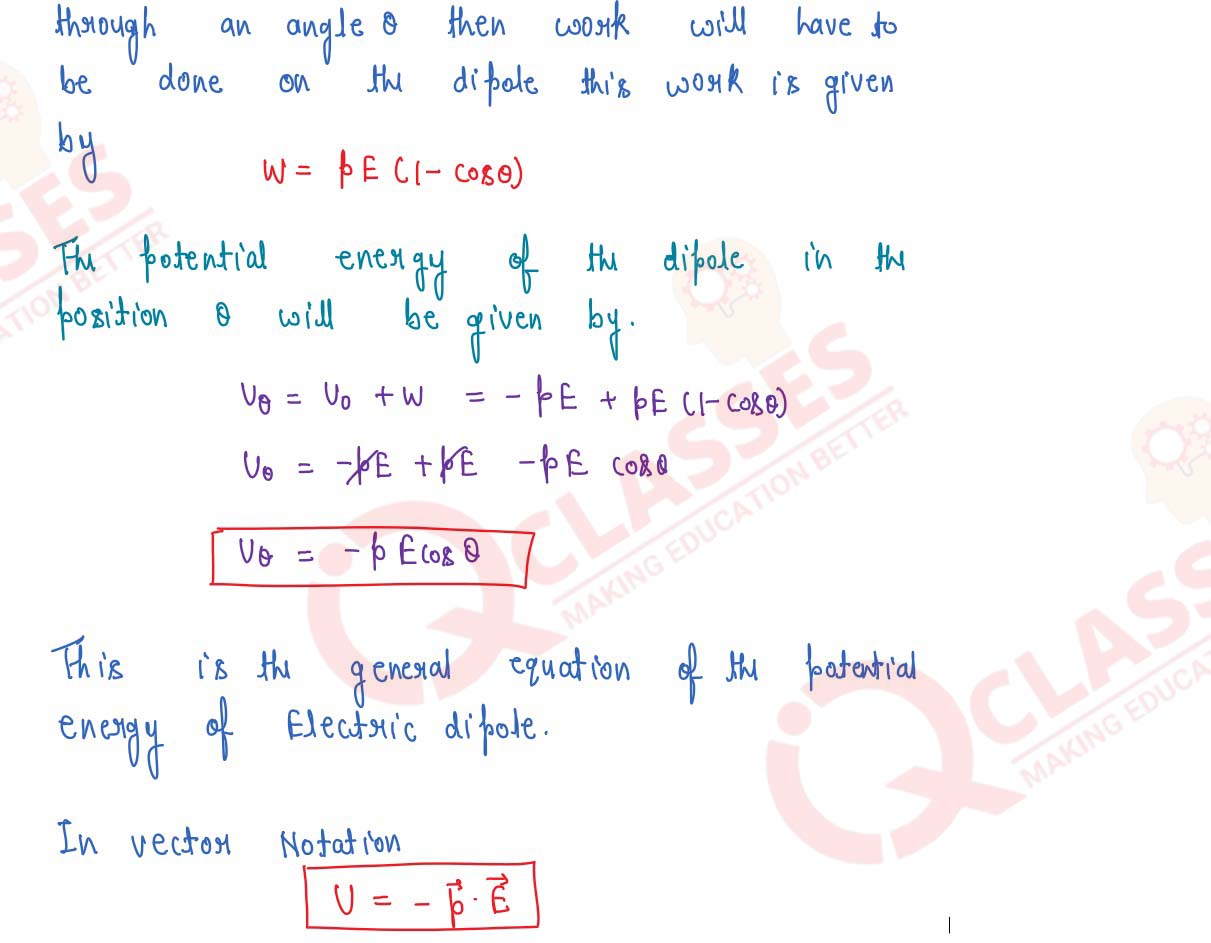 through an angle θ then work will have to
be done on the dipole this work is given
by
W = pE (1 - cosθ)
The potential energy of the dipole in the
position θ will be given by.
Uθ = U0 + W = - pE + pE (1 - cosθ)
Uθ = -pE + pE - pE cosθ
Uθ = - p E cos θ
This is the general equation of the potential
energy of Electric dipole.
In vector Notation
U = - p⃗ · E⃗
SSES
ATION BETTER
QCLASSES
MAKING EDUCATION BETTER
QCLASS
MAKING EDUCA